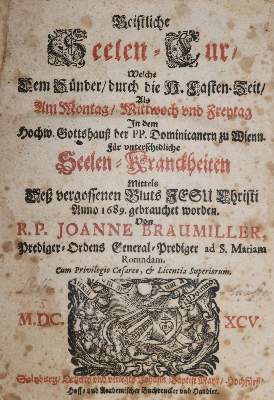 Geistliche
Seelen-Cur/
Welche
Dem Sünder/ durch die H. Fasten-Zeit/
Als
Am Montag/ Mittwoch und Freytag
In dem
Hochw. Gottshauß der PP. Dominicanern zu Wienn.
Für unterschidliche
Seelen-Kranckheiten
Mittels
Deß vergossenen Bluts JESU Christi
Anno 1689. gebrauchet worden.
Von
R. P. JOANNE BRAUMILLER,
Prediger-Ordens General-Prediger ad S. Mariam
Rotundam.
Cum Privilegio Cæsareo, & Licentia Superiorum.
M.DC. XCV.
Saltzburg/ Gedruckt und verlegts Johann Baptist Mayr/ Hochfürstl.
Hoff- und Academischer Buchdrucker und Handler.